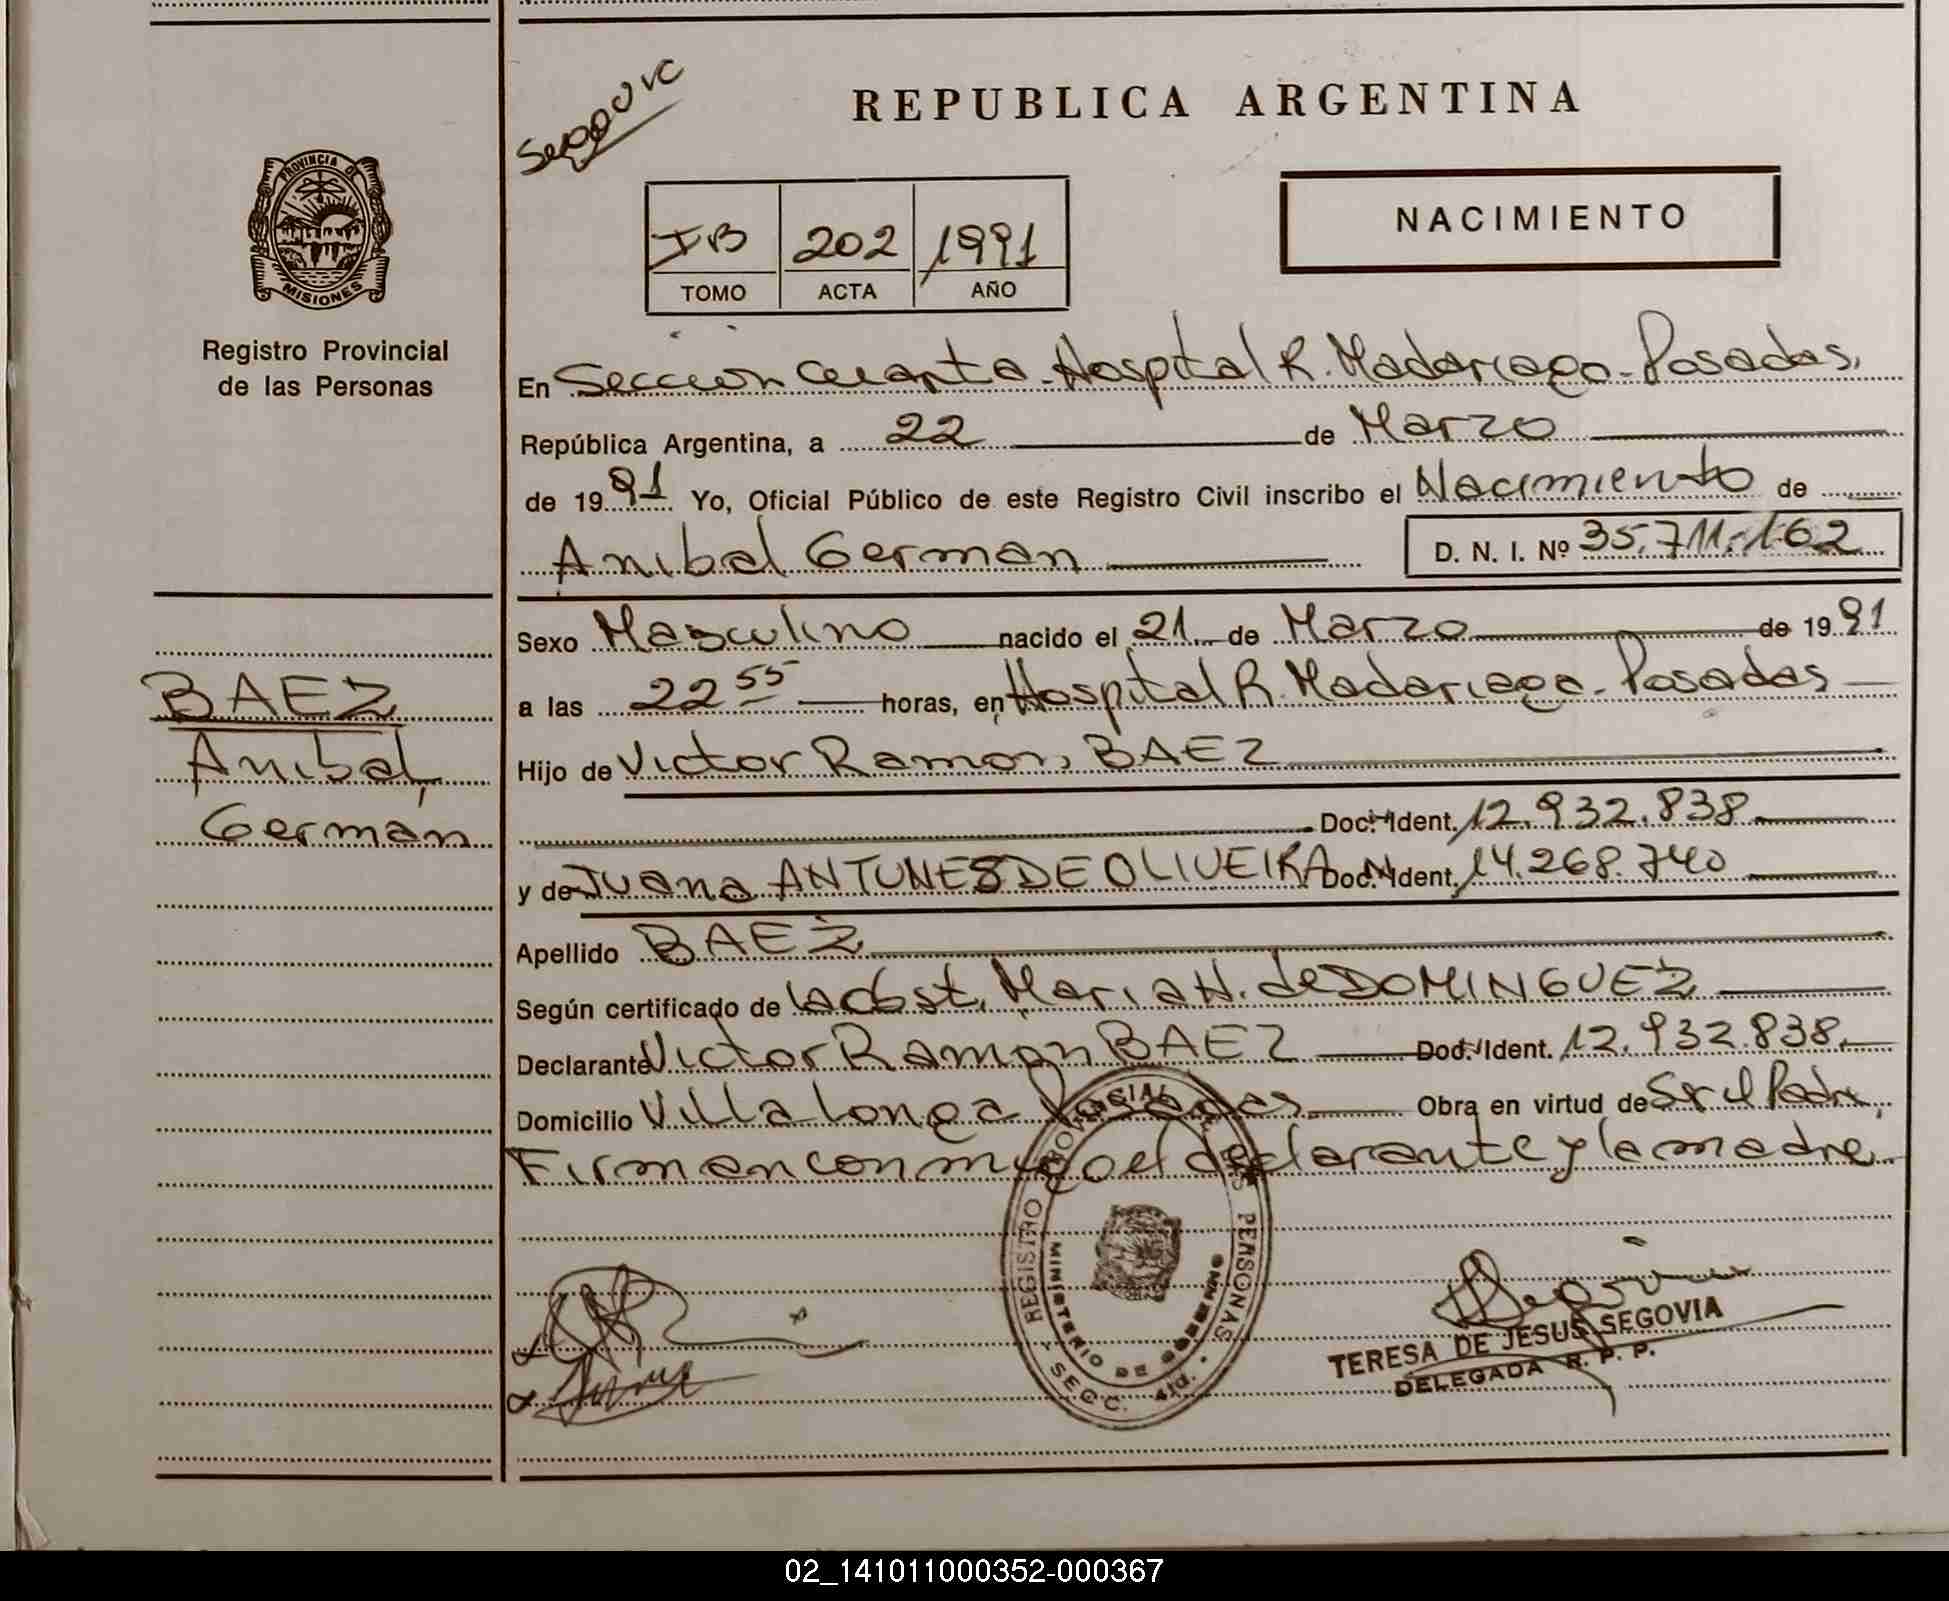 REPUBLICA ARGENTINA
PROVINCIA DE
MISIONES
Registro Provincial
de las Personas
NACIMIENTO
IB 202 1991
TOMO ACTA AÑO
En Sección Cuarta - Hospital R. Madariaga - Posadas,
República Argentina, a 22 de Marzo
de 1991 Yo, Oficial Público de este Registro Civil inscribo el Nacimiento de
Anibal German
D. N. I. Nº 35.711.162
Sexo Masculino nacido el 21 de Marzo de 1991
a las 22 55 horas, en Hospital R. Madariaga - Posadas
Hijo de Victor Ramon, BAEZ
Doc. Ident. 12.932.838
y de Juana ANTUNES DE OLIVEIRA Doc. Ident. 14.268.740
Apellido BAEZ
Según certificado de la Obst. Maria H. de DOMINGUEZ
Declarante Victor Ramon BAEZ Doc. Ident. 12.932.838
Domicilio Villa Longa Posadas Obra en virtud de Ser el Padre,
Firman conmigo el declarante y la madre
BAEZ
Anibal,
German
REGISTRO PROVINCIAL DE LAS PERSONAS
MINISTERIO DE GOBIERNO
SECC. 4ta.
TERESA DE JESUS SEGOVIA
DELEGADA R. P. P.
02_141011000352-000367